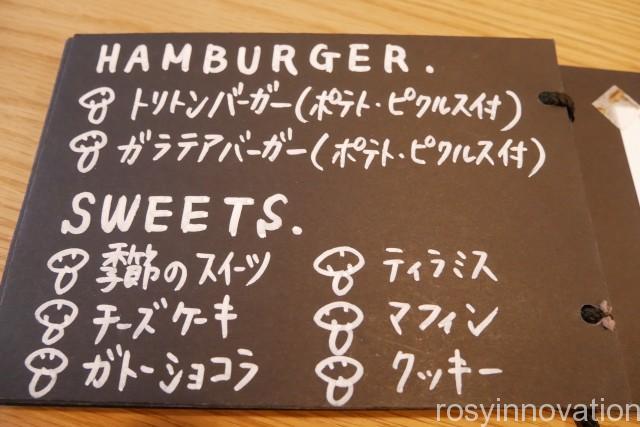 HAMBURGER.
トリトンバーガー(ポテト・ピクルス付)
ガラテアバーガー(ポテト・ピクルス付)
SWEETS.
季節のスイーツ
チーズケーキ
ガトーショコラ
ティラミス
マフィン
クッキー
rosyinnovation